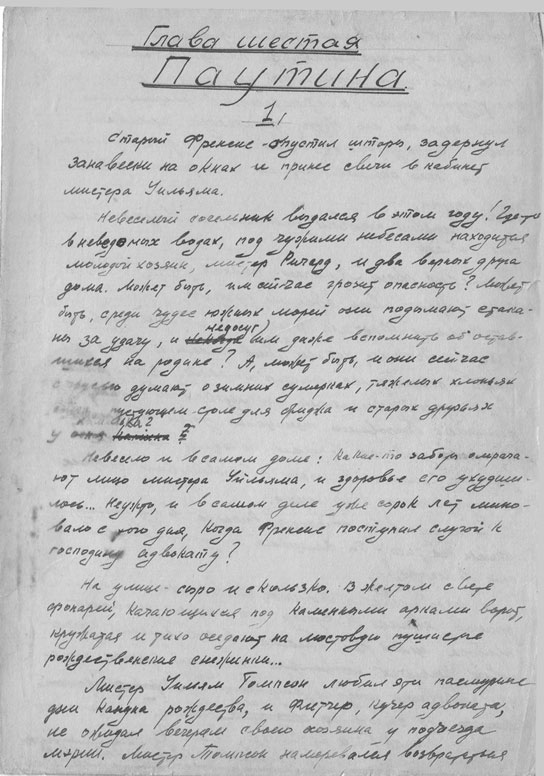 Глава шестая
Паутина
1/
Старый Френсис опустил шторы, задернул
занавески на окнах и принес свечи в кабинет
мистера Уильяма.
Невеселый сочельник выдался в этом году! Где-то
в неведомых водах, под чужими небесами находится
молодой хозяин, мистер Ричард, и два верных друга
дома. Может быть, им сейчас грозит опасность? Может
быть, среди чудес южных морей они подымают стака-
недосуг
ны за удачу, и им даже вспомнить об остав-
шихся на родине? А, может быть, и они сейчас
думают о зимних сумерках, тяжелых хлопьях
столе для и старых друзьях
у камина
Невесело и в самом доме: какие-то заботы омрача-
ют лицо мистера Уильяма, и здоровье его ухудши-
лось... Неужто, и в самом деле уже сорок лет мино-
вало с того дня, когда Френсис поступил слугой к
господину адвокату?
На улице - сыро и скользко. В желтом свете
фонарей, качающихся под каменными арками ворот,
кружатся и тихо оседают на мостовую пушистые
рождественские снежинки...
Мистер Уильям Томпсон любил эти пасмурные
дни кануна рождества, и Флетчер, кучер адвоката,
не ожидал вечерам своего хозяина у подъезда
мэрии. Мистер Томпсон намеревался возвратиться